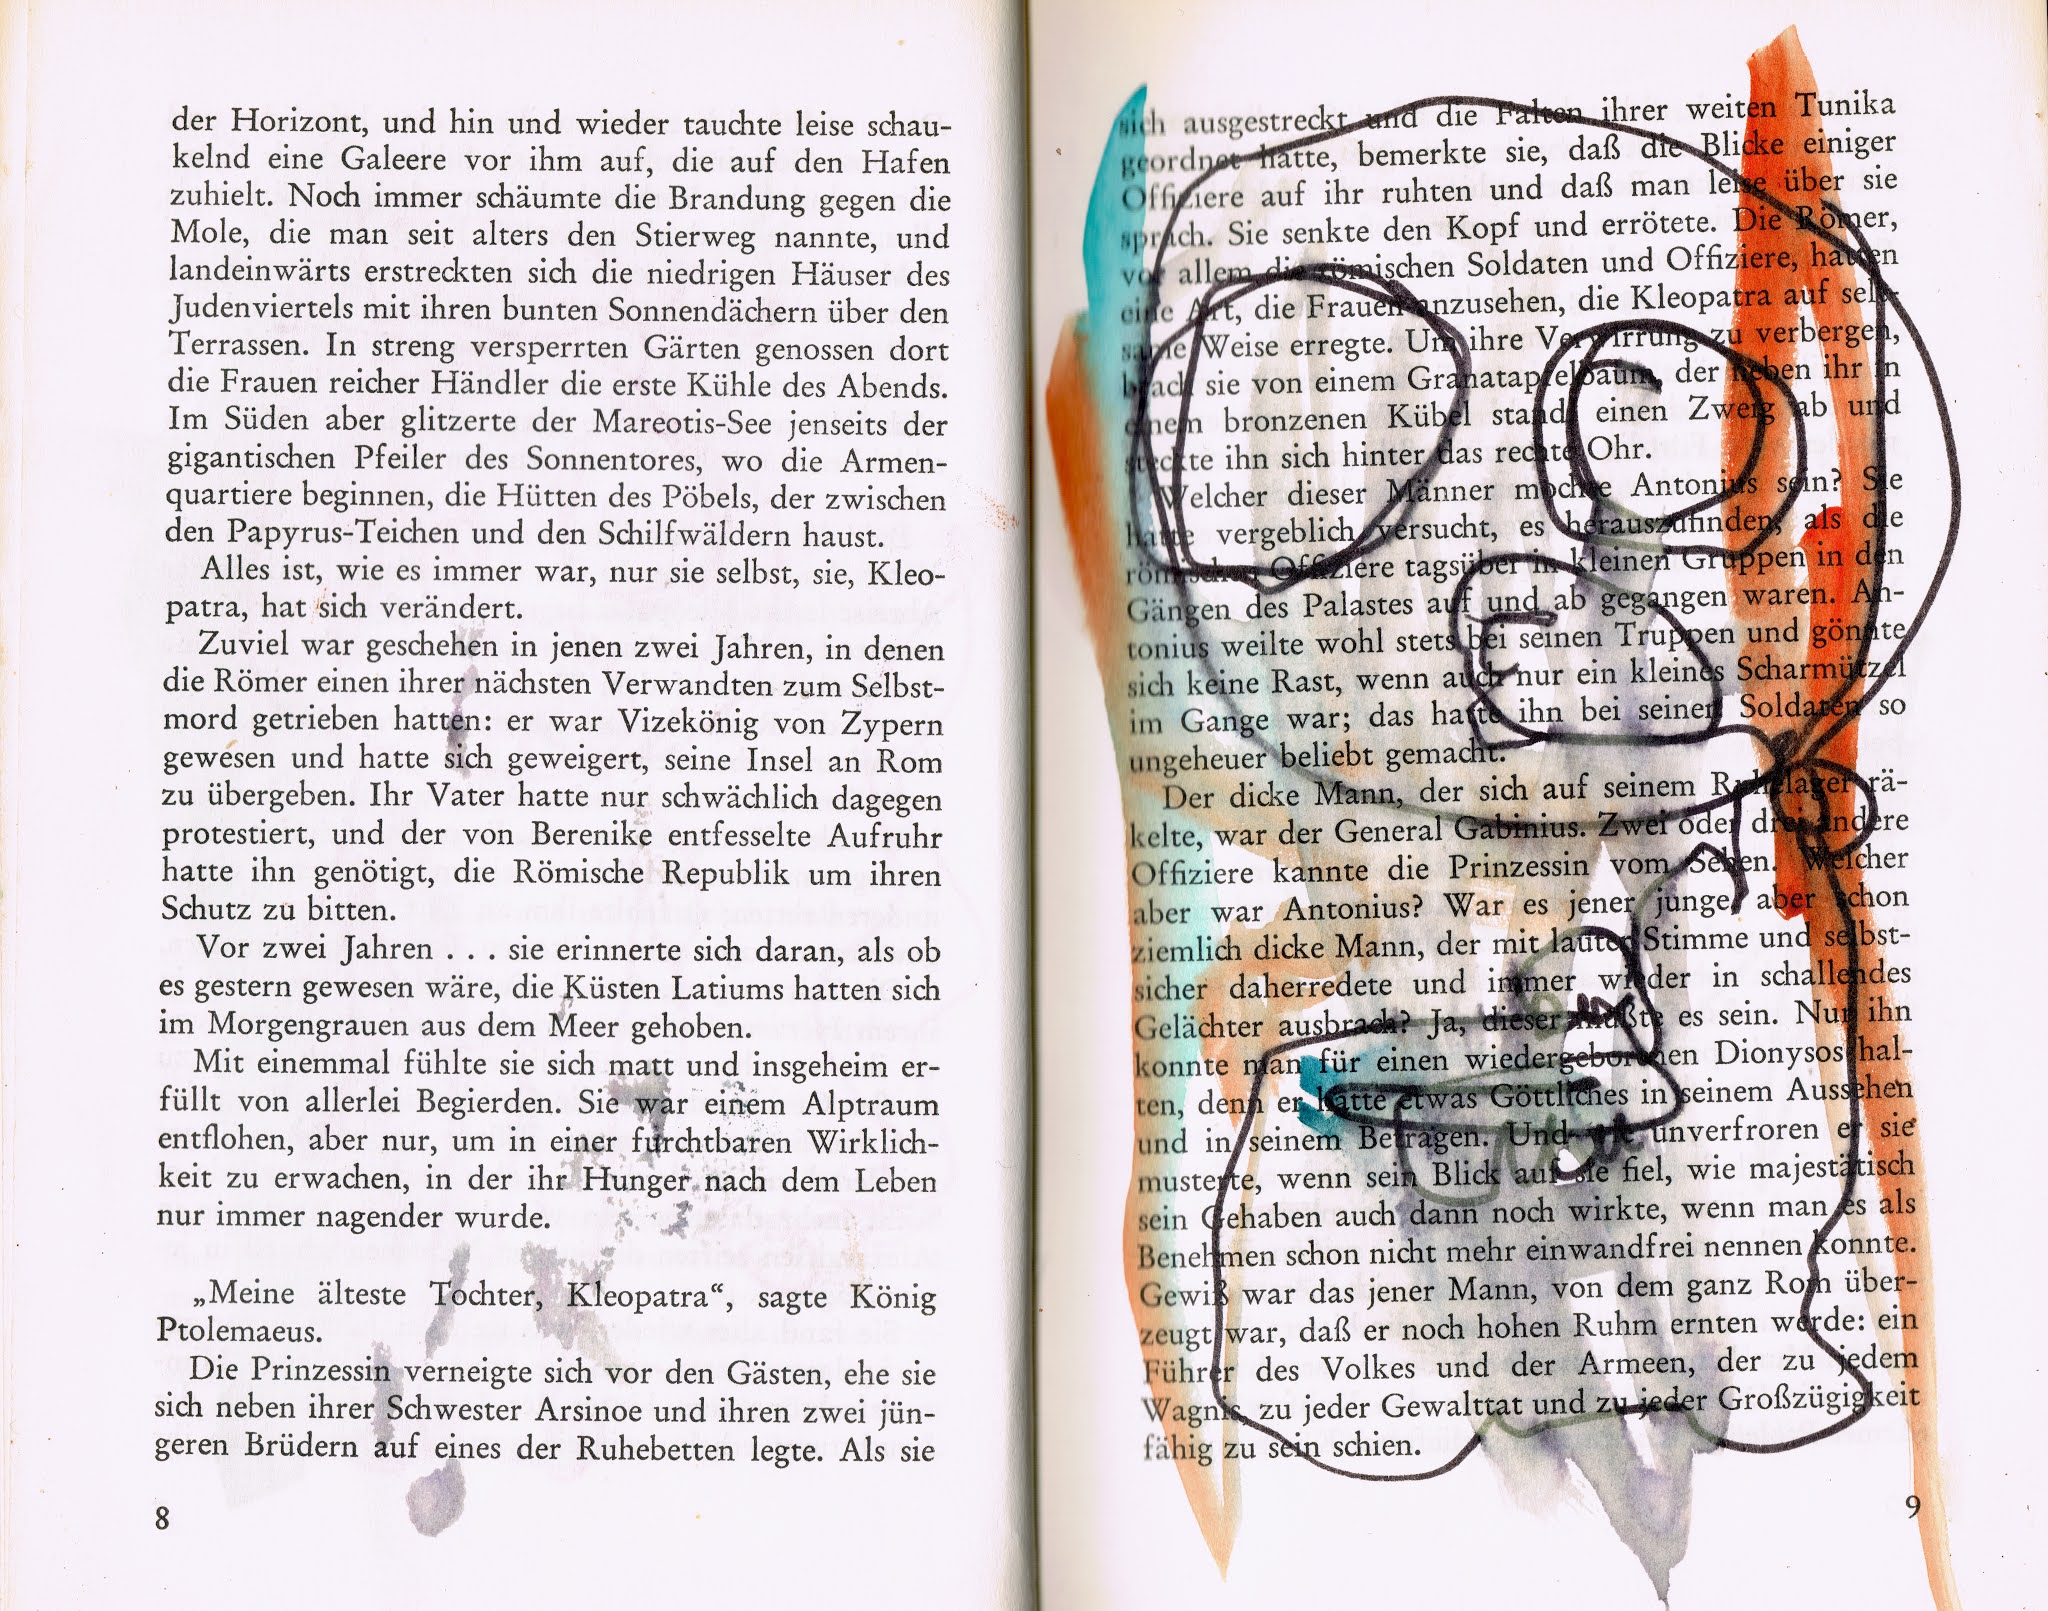 der Horizont, und hin und wieder tauchte leise schau-
kelnd eine Galeere vor ihm auf, die auf den Hafen
zuhielt. Noch immer schäumte die Brandung gegen die
Mole, die man seit alters den Stierweg nannte, und
landeinwärts erstreckten sich die niedrigen Häuser des
Judenviertels mit ihren bunten Sonnendächern über den
Terrassen. In streng versperrten Gärten genossen dort
die Frauen reicher Händler die erste Kühle des Abends.
Im Süden aber glitzerte der Mareotis-See jenseits der
gigantischen Pfeiler des Sonnentores, wo die Armen-
quartiere beginnen, die Hütten des Pöbels, der zwischen
den Papyrus-Teichen und den Schilfwäldern haust.
Alles ist, wie es immer war, nur sie selbst, sie, Kleo-
patra, hat sich verändert.
Zuviel war geschehen in jenen zwei Jahren, in denen
die Römer einen ihrer nächsten Verwandten zum Selbst-
mord getrieben hatten: er war Vizekönig von Zypern
gewesen und hatte sich geweigert, seine Insel an Rom
zu übergeben. Ihr Vater hatte nur schwächlich dagegen
protestiert, und der von Berenike entfesselte Aufruhr
hatte ihn genötigt, die Römische Republik um ihren
Schutz zu bitten.
Vor zwei Jahren . . . sie erinnerte sich daran, als ob
es gestern gewesen wäre, die Küsten Latiums hatten sich
im Morgengrauen aus dem Meer gehoben.
Mit einemmal fühlte sie sich matt und insgeheim er-
füllt von allerlei Begierden. Sie war einem Alptraum
entflohen, aber nur, um in einer furchtbaren Wirklich-
keit zu erwachen, in der ihr Hunger nach dem Leben
nur immer nagender wurde.
„Meine älteste Tochter, Kleopatra“, sagte König
Ptolemaeus.
Die Prinzessin verneigte sich vor den Gästen, ehe sie
sich neben ihrer Schwester Arsinoe und ihren zwei jün-
geren Brüdern auf eines der Ruhebetten legte. Als sie
8
sich ausgestreckt und die Falten ihrer weiten Tunika
geordnet hatte, bemerkte sie, daß die Blicke einiger
Offiziere auf ihr ruhten und daß man leise über sie
sprach. Sie senkte den Kopf und errötete. Die Römer,
vor allem die römischen Soldaten und Offiziere, hatten
eine Art, die Frauen anzusehen, die Kleopatra auf selt-
same Weise erregte. Um ihre Verwirrung zu verbergen,
brach sie von einem Granatapfelbaum, der neben ihr in
einem bronzenen Kübel stand, einen Zweig ab und
steckte ihn sich hinter das rechte Ohr.
Welcher dieser Männer mochte Antonius sein? Sie
hatte vergeblich versucht, es herauszufinden, als die
römischen Offiziere tagsüber in kleinen Gruppen in den
Gängen des Palastes auf und ab gegangen waren. An-
tonius weilte wohl stets bei seinen Truppen und gönnte
sich keine Rast, wenn auch nur ein kleines Scharmützel
im Gange war; das hatte ihn bei seinen Soldaten so
ungeheuer beliebt gemacht.
Der dicke Mann, der sich auf seinem Ruhelager rä-
kelte, war der General Gabinius. Zwei oder drei andere
Offiziere kannte die Prinzessin vom Sehen. Welcher
aber war Antonius? War es jener junge, aber schon
ziemlich dicke Mann, der mit lauter Stimme und selbst-
sicher daherredete und immer wieder in schallendes
Gelächter ausbrach? Ja, dieser mußte es sein. Nur ihn
konnte man für einen wiedergeborenen Dionysos hal-
ten, denn er hatte etwas Göttliches in seinem Aussehen
und in seinem Betragen. Und wie unverfroren er sie
musterte, wenn sein Blick auf sie fiel, wie majestätisch
sein Gehaben auch dann noch wirkte, wenn man es als
Benehmen schon nicht mehr einwandfrei nennen konnte.
Gewiß war das jener Mann, von dem ganz Rom über-
zeugt war, daß er noch hohen Ruhm ernten werde: ein
Führer des Volkes und der Armeen, der zu jedem
Wagnis, zu jeder Gewalttat und zu jeder Großzügigkeit
fähig zu sein schien.
9